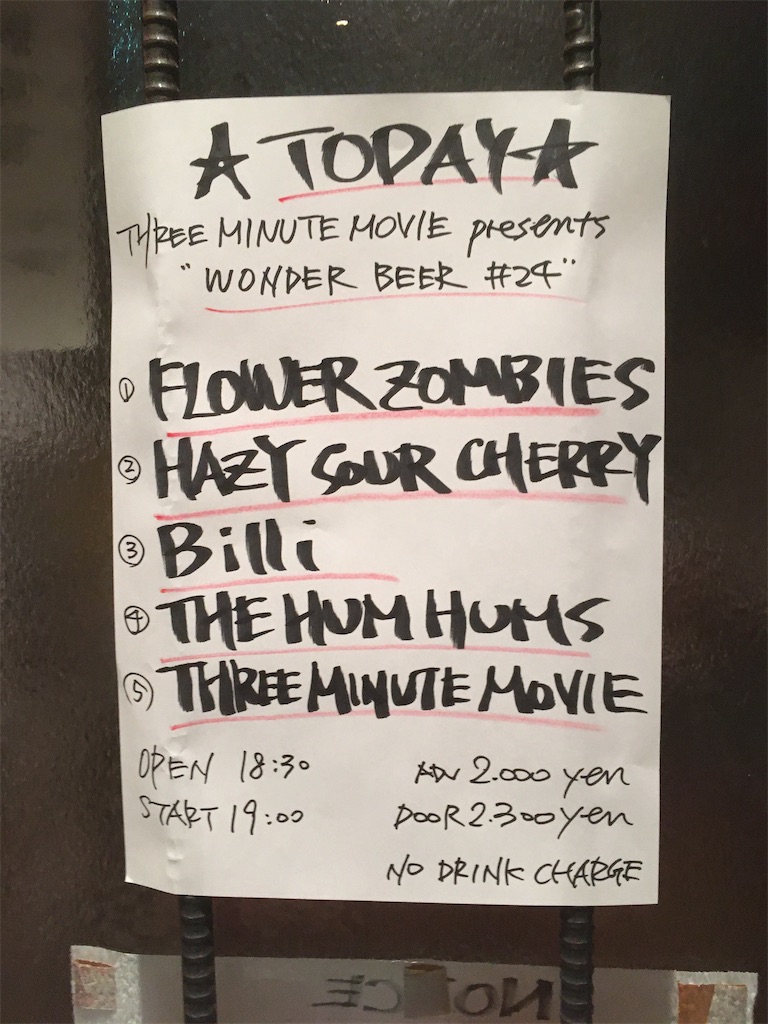 ★ TODAY ★
THREE MINUTE MOVIE presents
"WONDER BEER #24"
① FLOWER ZOMBIES
② HAZY SOUR CHERRY
③ Billi
④ THE HUM HUMS
⑤ THREE MINUTE MOVIE
OPEN 18:30
START 19:00
ADV 2.000 yen
DOOR 2.300 yen
NO DRINK CHARGE
NOTICE